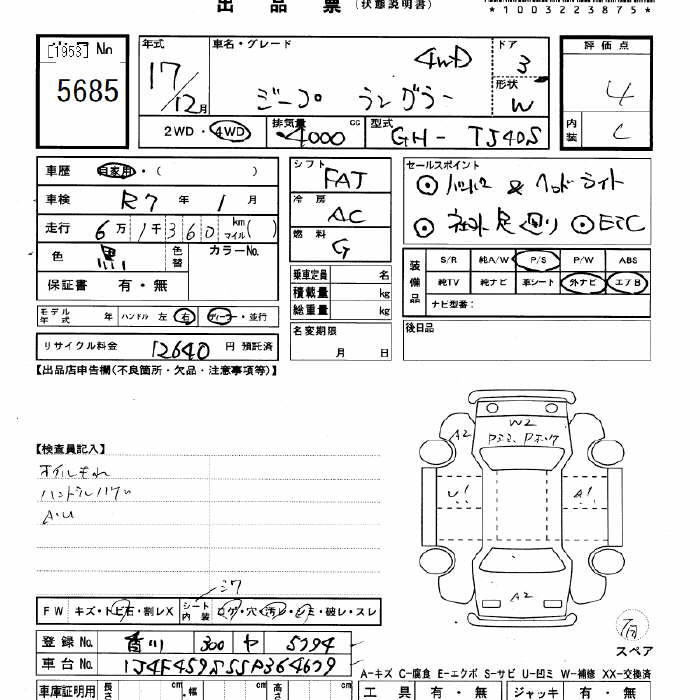 出品票 (状態説明書)
*1003223875*
[1953] No
5685
年式 17/12月
車名・グレード ジープ ラングラー 4WD
ドア 3
形状 W
2WD・4WD
排気量 4000 cc
型式 GH-TJ40S
評価点 4
内装 C
車歴 自家用・( )
車検 R7年 1月
走行 6万1千360 km マイル( )
色 黒 色替 カラーNo.
保証書 有・無
シフト FAT
冷房 AC
燃料 G
セールスポイント
◎バンパー & ヘッドライト
◎社外足廻り ◎ETC
装備品
S/R 純A/W P/S P/W ABS
純TV 純ナビ 革シート 外ナビ エアB
ナビ型番:
乗車定員 名
積載量 kg
総重量 kg
モデル年式 年 ハンドル 左 右 ディーラー・並行
名変期限 月 日
後日品
リサイクル料金 12640 円 預託済
【出品店申告欄(不良箇所・欠品・注意事項等)】
W2
A2
【検査員記入】
オイルもれ
A・U
U! A!
A2
シワ
FW キズ・トビ石・割レX シート内装 コゲ・穴・汚レ・シミ・破レ・スレ
スペア
登録No. 香川 300 ヤ 5794
車台No. 1J4F459S5SP364679
A-キズ C-腐食 E-エクボ S-サビ U-凹ミ W-補修 XX-交換済
車庫証明用 長さ cm 幅 cm 高さ cm
工具 有・無 ジャッキ 有・無